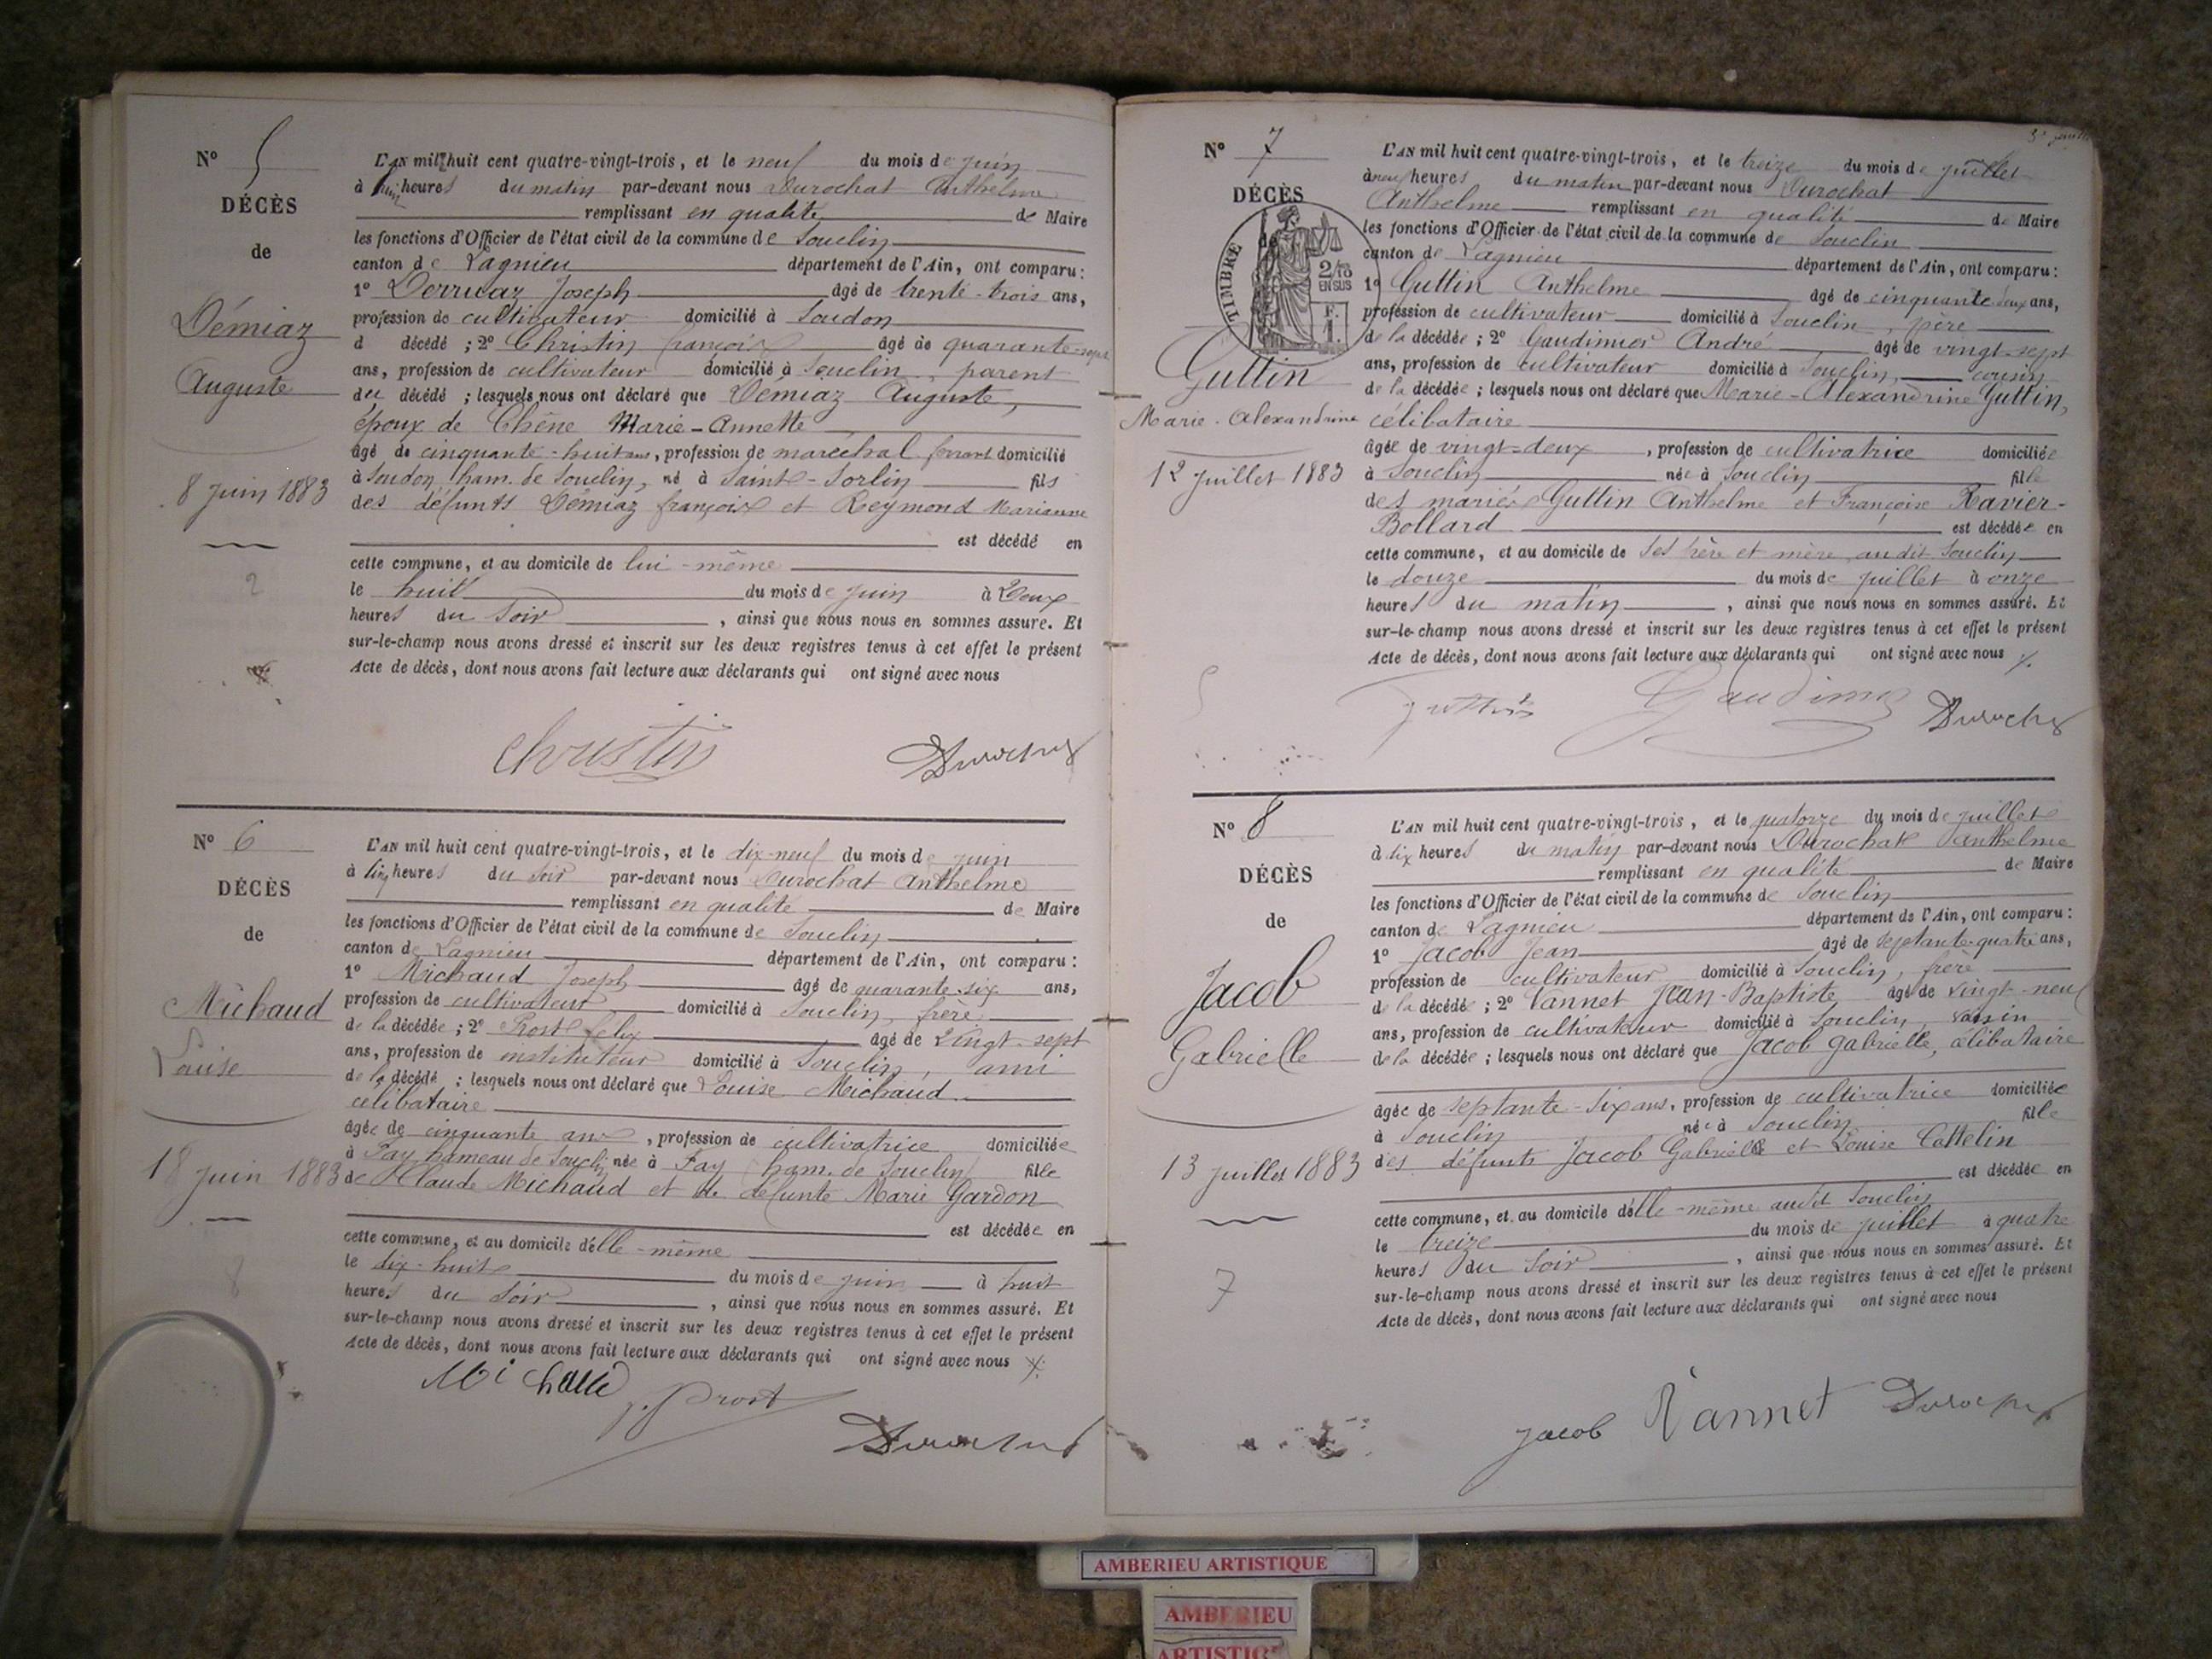 N° 5
DÉCÈS
de
Démiaz
Auguste
8 Juin 1883
2
L'AN mil huit cent quatre-vingt-trois, et le neuf du mois de juin
à huit heures du matin par-devant nous Durochat Anthelme
remplissant en qualité de Maire
les fonctions d'Officier de l'état civil de la commune de Souclin
canton de Lagnieu département de l'Ain, ont comparu :
1° Derruaz Joseph âgé de trente-trois ans,
profession de cultivateur domicilié à Soudon
d décédé ; 2° Christin françois âgé de quarante-sept
ans, profession de cultivateur domicilié à Souclin, parent
du décédé ; lesquels nous ont déclaré que Démiaz Auguste,
époux de Chêne Marie-Annette
âgé de cinquante-huit ans, profession de maréchal ferrant domicilié
à Soudon, ham. de Souclin, né à Saint-Sorlin fils
des défunts Démiaz françois et Reymond Marianne
est décédé en
cette commune, et au domicile de lui-même
le huit du mois de juin à Deux
heures du soir , ainsi que nous nous en sommes assuré. Et
sur-le-champ nous avons dressé et inscrit sur les deux registres tenus à cet effet le présent
Acte de décès, dont nous avons fait lecture aux déclarants qui ont signé avec nous
Christin Durochat
N° 6
DÉCÈS
de
Michaud
Louise
18 Juin 1883
8
L'AN mil huit cent quatre-vingt-trois, et le dix-neuf du mois de juin
à six heures du soir par-devant nous Durochat Anthelme
remplissant en qualité de Maire
les fonctions d'Officier de l'état civil de la commune de Souclin
canton de Lagnieu département de l'Ain, ont comparu :
1° Michaud Joseph âgé de quarante-six ans,
profession de cultivateur domicilié à Souclin, frère
de la décédée ; 2° Prost felix âgé de vingt-sept
ans, profession de instituteur domicilié à Souclin, ami
de la décédé ; lesquels nous ont déclaré que Louise Michaud
célibataire
âgée de cinquante ans , profession de cultivatrice domiciliée
à Fay hameau de Souclin, née à Fay ham. de Souclin fille
de Claude Michaud et de défunte Marie Gardon
est décédée en
cette commune, et au domicile d'elle-même
le dix-huit du mois de juin à huit
heures du soir , ainsi que nous nous en sommes assuré. Et
sur-le-champ nous avons dressé et inscrit sur les deux registres tenus à cet effet le présent
Acte de décès, dont nous avons fait lecture aux déclarants qui ont signé avec nous
Michaud Prost
Durochat
N° 7
DÉCÈS
de
TIMBRE
2/10
EN SUS
F.
1.
Guttin
Marie-Alexandrine
12 juillet 1883
5
L'AN mil huit cent quatre-vingt-trois, et le treize du mois de juillet
à neuf heures du matin par-devant nous Durochat
Anthelme remplissant en qualité de Maire
les fonctions d'Officier de l'état civil de la commune de Souclin
canton de Lagnieu département de l'Ain, ont comparu :
1° Guttin Anthelme âgé de cinquante deux ans,
profession de cultivateur domicilié à Souclin, père
de la décédée ; 2° Gaudimier André âgé de vingt-sept
ans, profession de cultivateur domicilié à Souclin, cousin
de la décédée ; lesquels nous ont déclaré que Marie-Alexandrine Guttin,
célibataire
âgée de vingt-deux , profession de cultivatrice domiciliée
à Souclin née à Souclin fille
des mariés Guttin Anthelme et Françoise Ravier-
Bollard est décédée en
cette commune, et au domicile de ses père et mère audit Souclin
le douze du mois de juillet à onze
heures du matin , ainsi que nous nous en sommes assuré. Et
sur-le-champ nous avons dressé et inscrit sur les deux registres tenus à cet effet le présent
Acte de décès, dont nous avons fait lecture aux déclarants qui ont signé avec nous
Guttin Gaudimier Durochat
N° 8
DÉCÈS
de
Jacob
Gabrielle
13 juillet 1883
7
L'AN mil huit cent quatre-vingt-trois, et le quatorze du mois de juillet
à six heures du matin par-devant nous Durochat Anthelme
remplissant en qualité de Maire
les fonctions d'Officier de l'état civil de la commune de Souclin
canton de Lagnieu département de l'Ain, ont comparu :
1° Jacob Jean âgé de septante-quatre ans,
profession de cultivateur domicilié à Souclin, frère
de la décédée ; 2° Vannet Jean-Baptiste âgé de vingt-neuf
ans, profession de cultivateur domicilié à Souclin, voisin
de la décédée ; lesquels nous ont déclaré que Jacob Gabrielle, célibataire
âgée de septante-six ans, profession de cultivatrice domiciliée
à Souclin née à Souclin fille
des défunts Jacob Gabriel et Louise Cottelin
est décédée en
cette commune, et au domicile d'elle-même audit Souclin
le treize du mois de juillet à quatre
heures du soir , ainsi que nous nous en sommes assuré. Et
sur-le-champ nous avons dressé et inscrit sur les deux registres tenus à cet effet le présent
Acte de décès, dont nous avons fait lecture aux déclarants qui ont signé avec nous
Jacob Vannet Durochat
AMBERIEU ARTISTIQUE
AMBERIEU
ARTISTIQUE